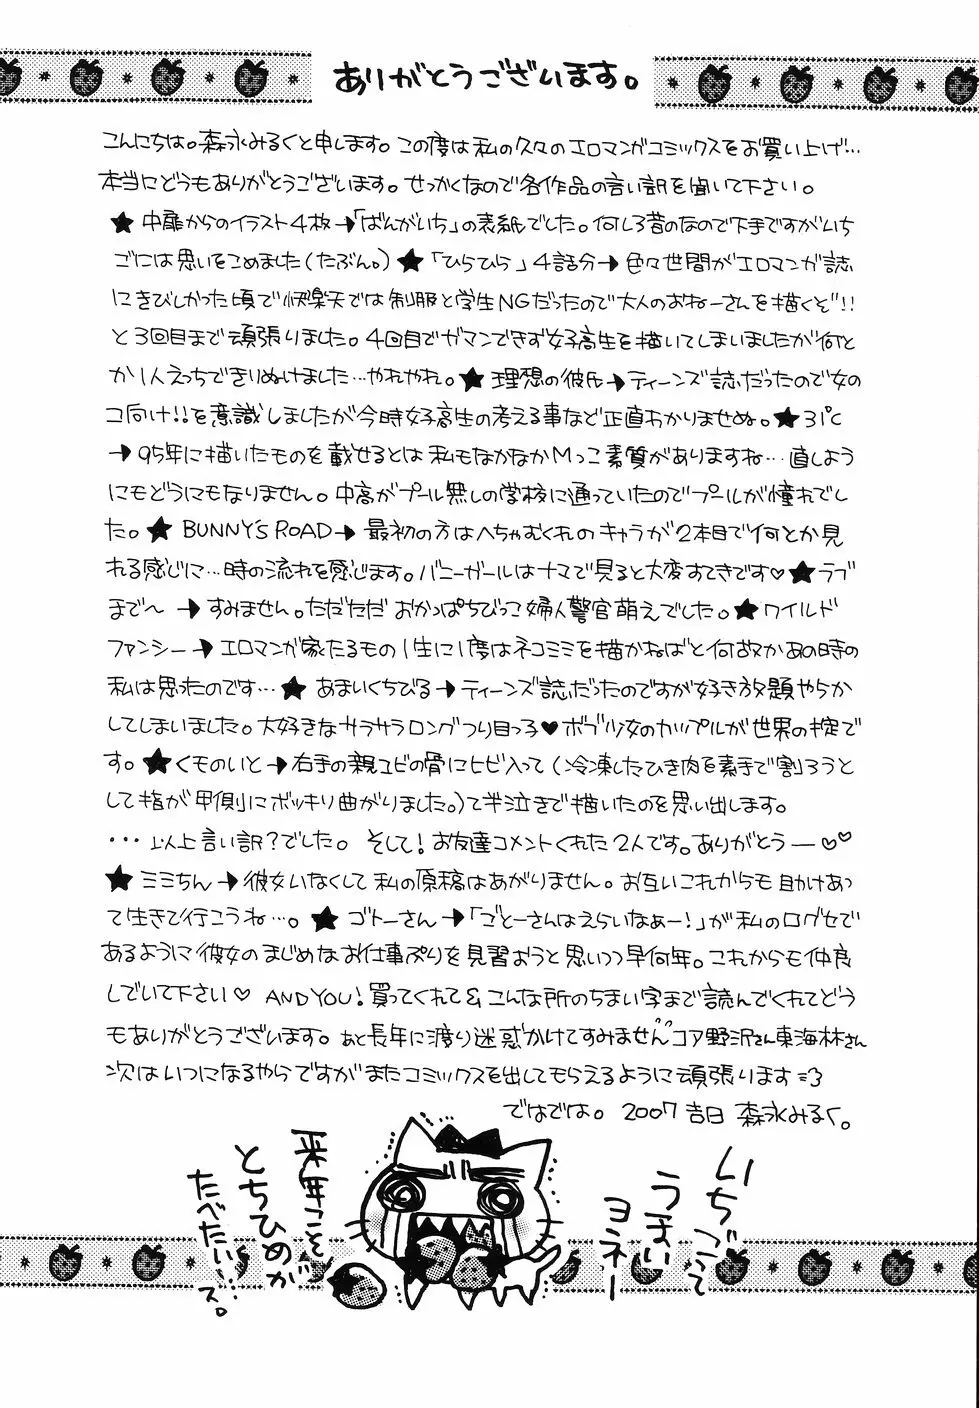 ありがとうございます。
こんにちは。森永みるくと申します。この度は私の久々のエロマンガコミックスをお買い上げ…
本当にどうもありがとうございます。せっかくなので各作品の言い訳を聞いて下さい。
★ 中扉からのイラスト4枚→「ばんがいち」の表紙でした。何しろ昔のなので下手ですがいち
ごには思いをこめました(たぶん。) ★ 「ひらひら」4話分→色々世間がエロマンガ誌
にきびしかった頃で快楽天では制服と学生NGだったので大人のおねーさんを描くぞ!!
と3回目まで頑張りました。4回目でガマンできず女子高生を描いてしまいましたが何と
か1人えっちできりぬけました…やれやれ。★ 理想の彼氏→ティーンズ誌だったので女の
コ向け!!を意識しましたが今時女子高生の考える事など正直わかりませぬ。★31℃
→95年に描いたものを載せるとは私もなかなかMっこ素質がありますね…直しよう
にもどうにもなりません。中高がプール無しの学校に通っていたのでプールが憧れでし
た。★ BUNNY'S ROAD→ 最初の方はへちゃむくれのキャラが2本目で何とか見
れる感じに…時の流れを感じます。バニーガールはナマで見ると大変すてきです♡★ラブ
まで〜 →すみません。ただただ おかっぱちびっこ婦人警官萌えでした。★ワイルド
ファンシー→エロマンガ家たるもの1生に1度はネコミミを描かねばと何故かあの時の
私は思ったのです…★ あまいくちびる→ティーンズ誌だったのですが好き放題やらか
してしまいました。大好きなサラサラロングつり目っ子♥ボブ少女のカップルが世界の掟で
す。★くものいと→右手の親ユビの骨にヒビ入って(冷凍したひき肉を素手で割ろうと
して指が甲側にボッキリ曲がりました。)て半泣きで描いたのを思い出します。
・・・以上言い訳?でした。 そして!お友達コメントくれた2人です。ありがとうー♡♡
★ミミちん→彼女いなくして私の原稿はあがりません。お互いこれからも助けあっ
て生きて行こうね…。★ ゴトーさん→「ごとーさんはえらいなぁー!」が私の口グセで
あるように彼女のまじめなお仕事ぷりを見習おうと思いつつ早何年。これからも仲良
しでいて下さい♡ AND YOU!買ってくれて&こんな所のちまい字まで読んでくれてどう
もありがとうございます。あと長年に渡り迷惑かけてすみません コア野沢さん東海林さん
次はいつになるやらですがまたコミックスを出してもらえるように頑張ります=3
ではでは。2007 吉日 森永みるく。
いちごって
うまい
ヨネー
来年こそ
とちひめが
たべたいじ…
ス。